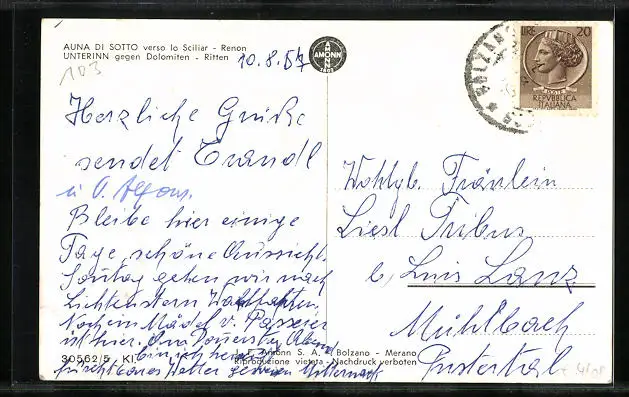 AUNA DI SOTTO verso lo Sciliar - Renon
UNTERINN gegen Dolomiten - Ritten
103
10.8.57
AMONN
LIRE 20
REPVBBLICA
ITALIANA
BOLZANO
Herzliche Grüße
sendet Trandl
u O. Alfons.
Bleibe hier einige
Tage, schöne Aussicht.
Sonntag gehen wir nach
Lichtenstern Wallfahrten.
Noch ein Mädel v. Passeier
ist hier. Am Donnerstag Abend
bin ich
furchtbares Wetter gewesen Mitternacht
Wohlgb. Fräulein
Liesl Tribus
b, Luis Lanz
Mühlbach
Pustertal
30562/5 KI.
Amonn S. A. Bolzano - Merano
Riproduzione vietata - Nachdruck verboten